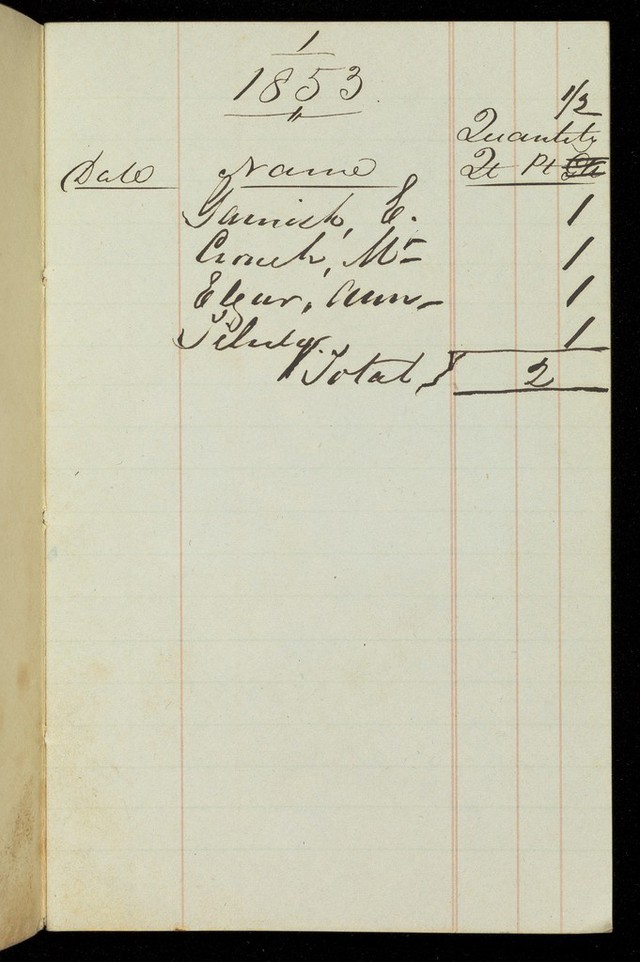 1
1853
1/2
Quantity
Date Name Qt Pt
Garnish, E. 1
Crouch, Mr 1
Elgar, Ann 1
Tiludy 1
Total } 2